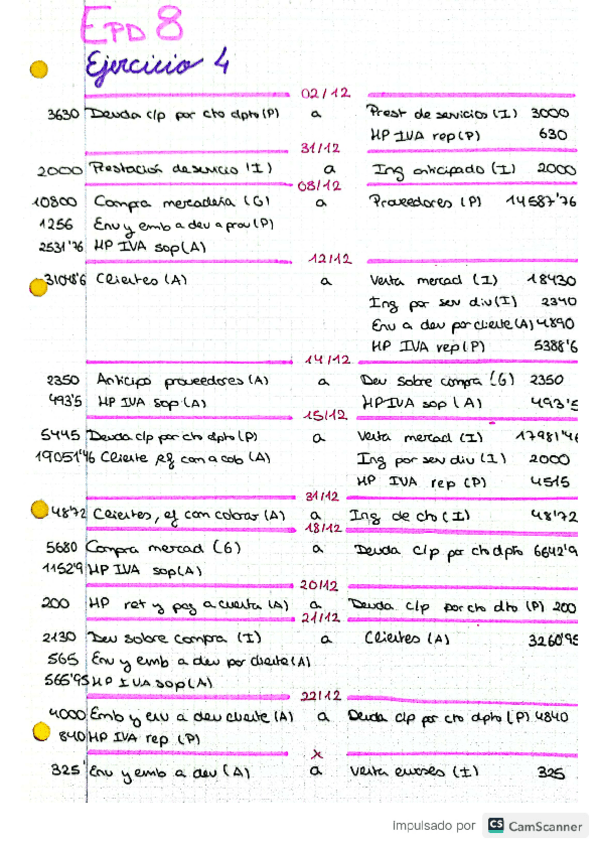 EPD 8
Ejercicio 4
02/12
3630 Deuda c/p por cto dpto (P) a Prest de servicios (I) 3000
HP IVA rep (P) 630
31/12
2000 Prestación de servicio (I) a Ing anticipado (I) 2000
08/12
10800 Compra mercadería (G) a Proveedores (P) 14587'76
1256 Env y emb a dev a prov (P)
2531'76 HP IVA sop (A)
12/12
31048'6 Clientes (A) a Venta mercad (I) 18430
Ing por serv div (I) 2340
Env a dev por cliente (A) 4890
HP IVA rep (P) 5388'6
14/12
2350 Anticipo proveedores (A) a Dev sobre compra (G) 2350
493'5 HP IVA sop (A) HP IVA sop (A) 493'5
15/12
5445 Deuda c/p por cto dpto (P) a Venta mercad (I) 17981'46
19051'46 Cliente, ef com a cob (A) Ing por serv div (I) 2000
HP IVA rep (P) 4515
31/12
48'72 Clientes, ef com cobrar (A) a Ing de cto (I) 48'72
18/12
5680 Compra mercad (G) a Deuda c/p por cto dpto 6642'9
1152'9 HP IVA sop (A)
20/12
200 HP ret y pag a cuenta (A) a Deuda c/p por cto dto (P) 200
21/12
2130 Dev sobre compra (I) a Clientes (A) 3260'95
565 Env y emb a dev por cliente (A)
565'95 HP IVA sop (A)
22/12
4000 Emb y env a dev cliente (A) a Deuda c/p por cto dpto (P) 4840
840 HP IVA rep (P)
X
325 Env y emb a dev (A) a Venta envases (I) 325
Impulsado por CS CamScanner